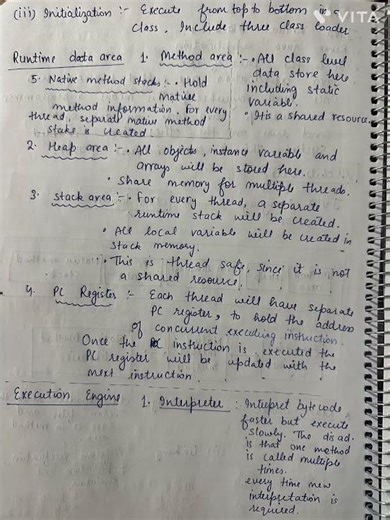 VITA
(iii) Initialization :- Execute from top to bottom in a
class. Include three class loader
Runtime data area
1. Method area :- • All class level
data store here
including static
variable.
• It is a shared resource.
5. Native method stack :- • Hold
native
method information. For every
thread, separate native method
stake is created
2. Heap area :- • All objects, instance variable and
arrays will be stored here.
• share memory for multiple threads.
3. Stack area :- • For every thread, a separate
runtime stack will be created.
• All local variable will be created in
stack memory.
• This is thread safe, since it is not
a shared resource.
4. PC Register :- Each thread will have separate
PC register, to hold the address
of concurrent executing instruction.
Once the instruction is executed the
PC register will be updated with the
next instruction
Execution Engine
1. Interpreter : Intrupret byte code
faster but execute
slowly. The disad.
is that one method
is called multiple
times.
every time new
interpretation is
required.